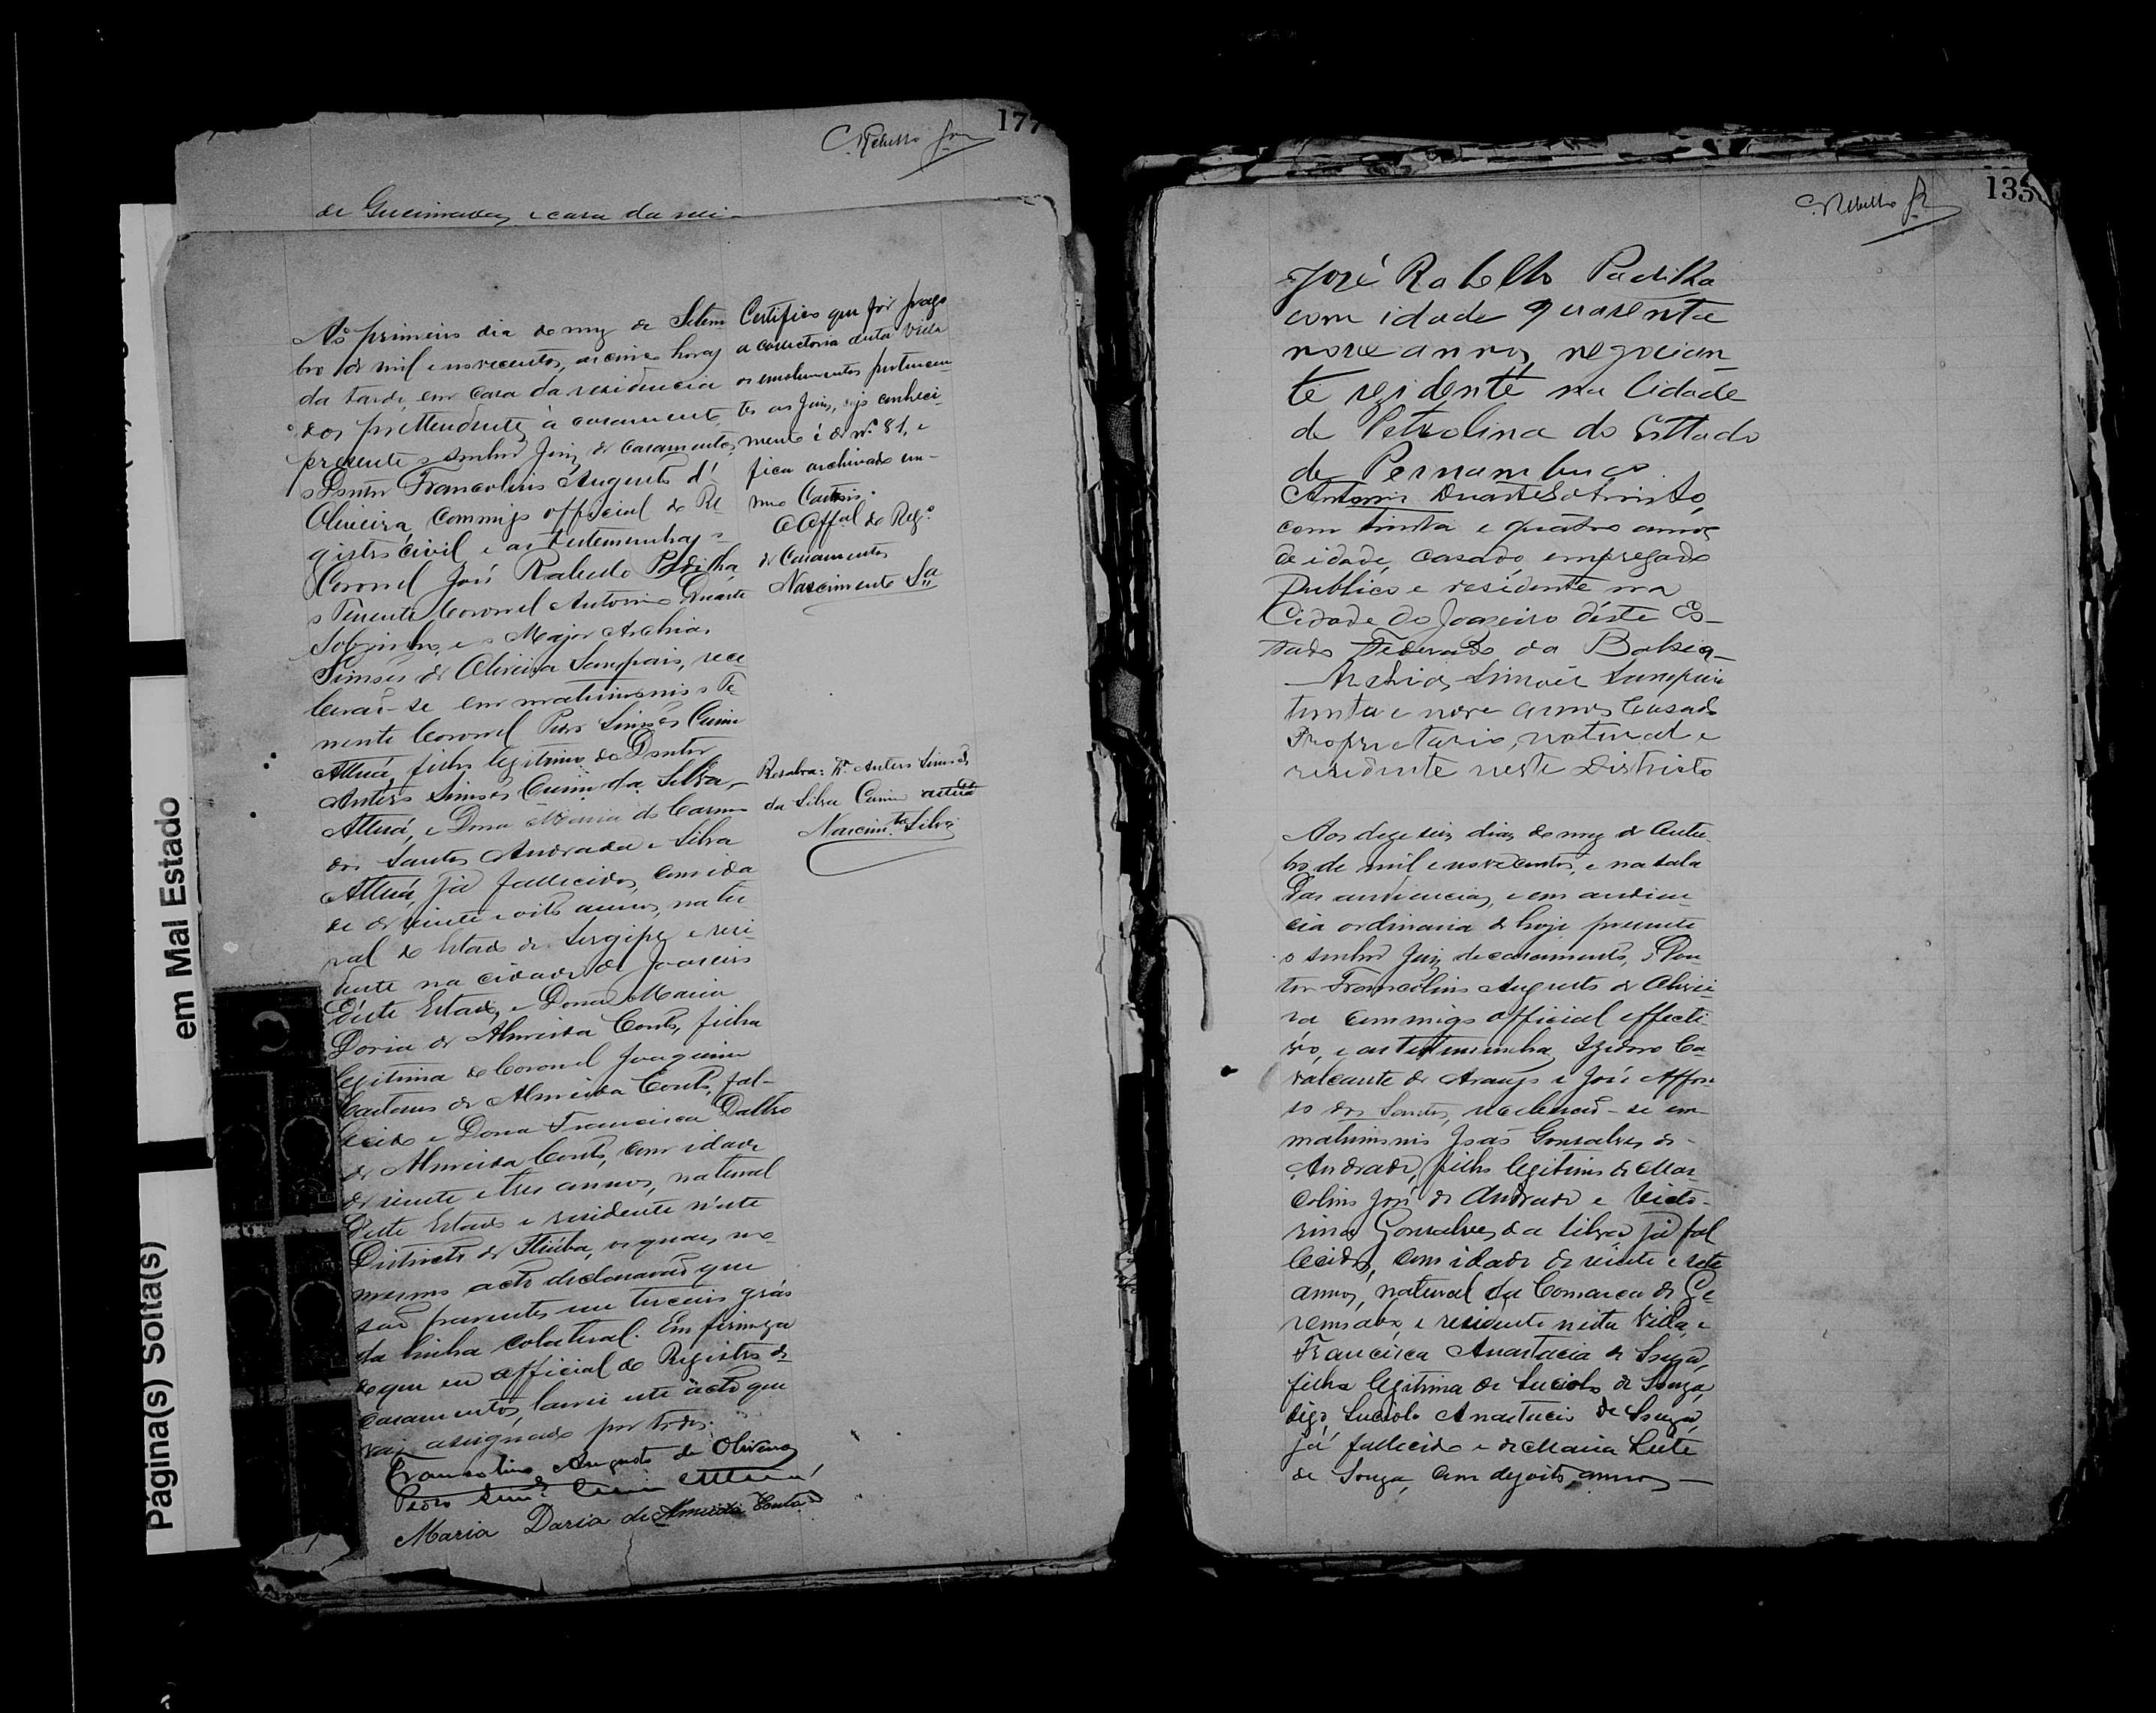 177
C. Rebello Jor
de Queimadas, e casa da resi-
Ao primeiro dia do mez de Setem
bro de mil e novecentos, as cinco horas
da tarde, em casa da residencia
dos prettendentes à casamento,
presente o senhor Juiz de casamentos,
o Doutor Francolino Augusto d'
Oliveira, commigo official do Re
gistro civil e as testemunhas o
Coronel José Rabello Padilha,
o Tenente Coronel Antonio Duarte
Sobrinho, e o Major Archias
Simões de Oliveira Sampaio, rece
berão-se em matrimonio o Te
nente Coronel Pedro Simões Cuim
Attuá, filho legitimo do Doutor
Antero Simões Cuim da Silva
Attuá, e Dona Maria do Carmo
dos Santos Andrada e Silva
Attuá, já fallecidos, com ida
de de vinte e oito annos, natu
ral do Estado de Sergipe, e resi-
dente na cidade de Joaseiro
d'este Estado, e Dona Maria
Doria de Almeida Couto, filha
legitima do Coronel Joaquim
Caetano de Almeida Couto, fal-
lecido e Dona Francisca Daltro
de Almeida Couto, com idade
de vinte e tres annos, natural
d'este Estado e residente n'este
Districto de Itiúba, os quaes no
mesmo acto declararão que
são parentes em terceiro gráo
da linha colateral. Em firmeza
do que eu official do Registro de
casamentos, lavrei este acto que
vai assignado por todos.
Francolino Augusto de Oliveira
Pedro Simões Cuim Attuá
Maria Doria de Almeida Couto
Certifico que foi pago
a collectoria desta Villa
os emolumentos pertencen-
tes ao Juiz, cujo conheci-
mento é de nº 81, e
fica archivado em
meu Cartorio.
O Offal do Regº
de Casamentos
Nascimento Sª
Resalva: Dr. Antero Simões
da Silva Cuim Attuá
Nascimto Silva
em Mal Estado
Página(s) Solta(s)
135
C. Rebello Jr
José Rabello Padilha
com idade quarenta
nove annos, negocian
te rezidente na Cidade
de Petrolina do Esttado
de Pernambuco
Antonio Duarte Sobrinho,
com trinta e quatro annos
de idade, casado empregado
publico e residente na
Cidade do Joazeiro d'éste Es-
tado Federado da Bahia
Archias Simões Sampaio
trinta e nove annos Casado
Proprietario, natural e
residente neste Districto
Aos dezeseis dias do mez de Outu
bro de mil e novecentos, e na sala
das audiencias, e em audien-
cia ordinaria de hoje presente
o senhor Juiz de casamento, o Dou
tor Francolino Augusto de Olivei-
ra commigo official effecti-
vo, e as testemunhas Izidoro Ca-
valcante de Araujo e José Affon
so dos Santos, receberão-se em
matrimonio Isaś Gonsalves de
Andrade, filho legitimo de Mar
colino José de Andrade e Victo-
rina Gonsalves da Silva já fal
lecidos, com idade de vinte e sete
annos, natural da Comarca de Ge
remoabo, e residente nesta Villa, e
Francisca Anastacia de Souza,
filha legitima de Luciolo de Souza,
digo, Luciolo Anastacio de Souza,
já fallecido e de Maria Leite
de Souza, com dezoito annos